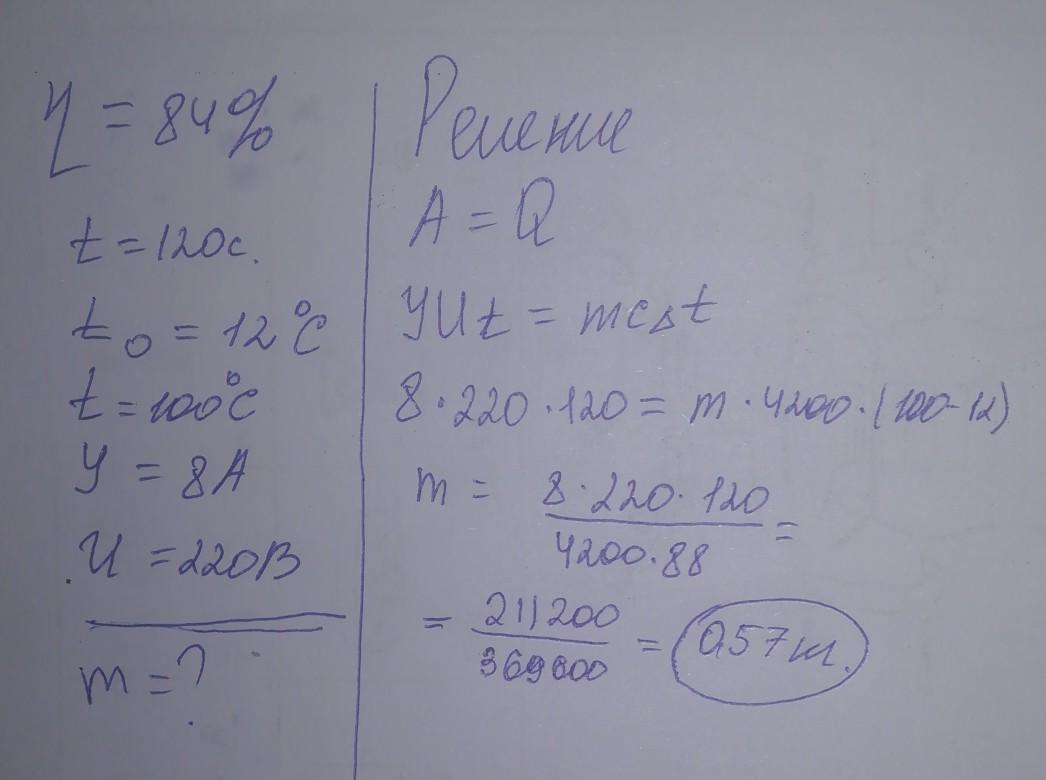 η = 84%
t = 120с.
t₀ = 12°C
t = 100°C
У = 8А
U = 220В
m = ?
Решение
A = Q
УUt = mc△t
8 · 220 · 120 = m · 4200 · (100 - 12)
m = 8 · 220 · 120 / 4200 · 88 =
= 211200 / 369600 = 0,57 кг.